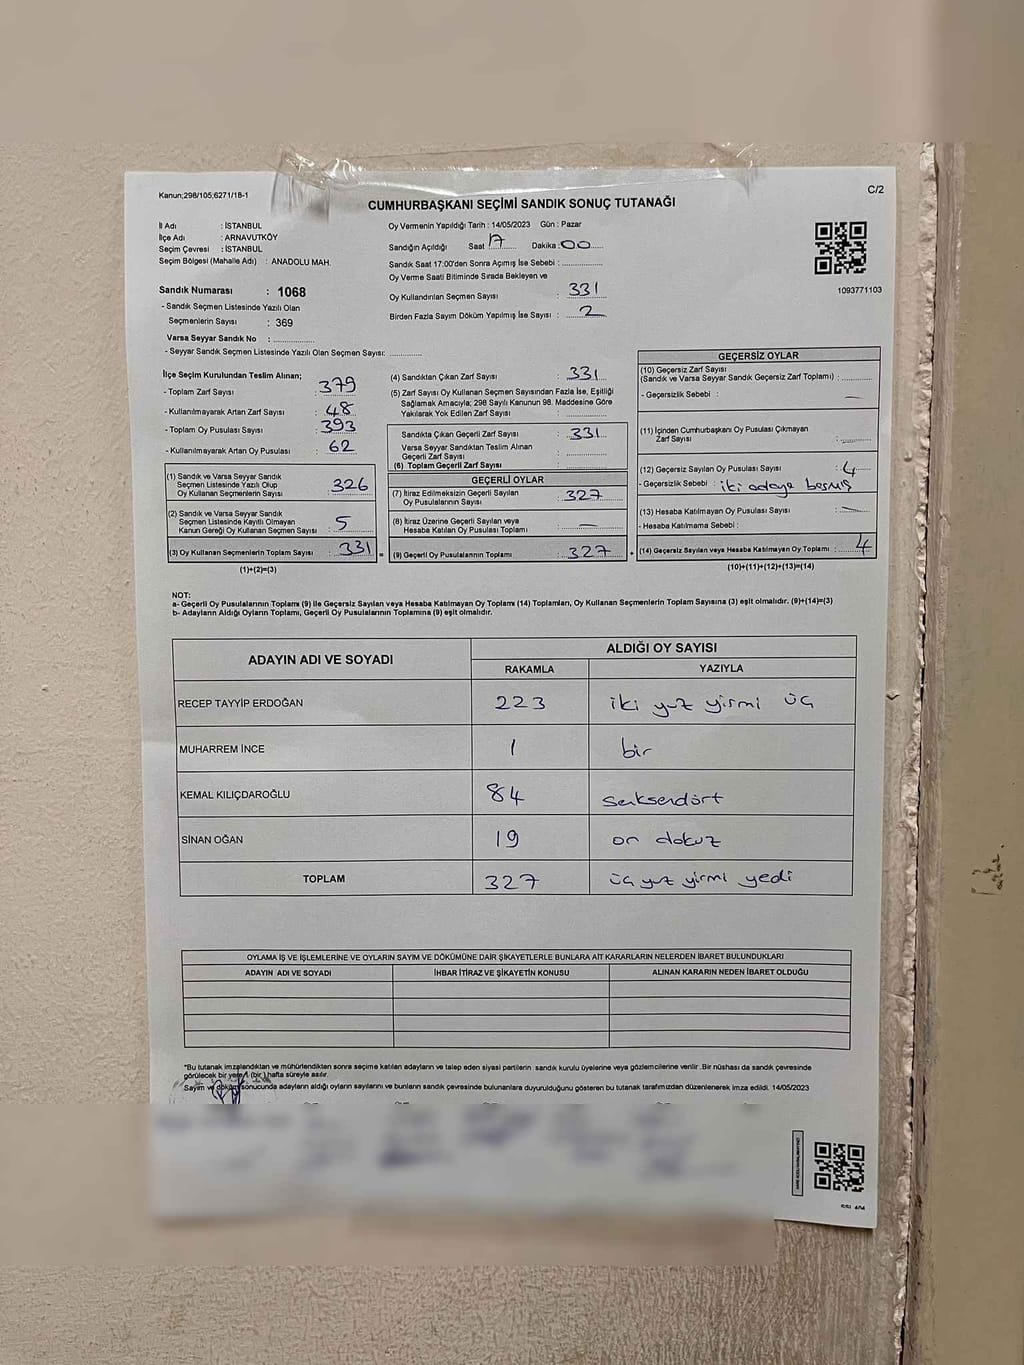 Kanun;298/105;6271/18-1
C/2
CUMHURBAŞKANI SEÇİMİ SANDIK SONUÇ TUTANAĞI
İl Adı : İSTANBUL
İlçe Adı : ARNAVUTKÖY
Seçim Çevresi : İSTANBUL
Seçim Bölgesi (Mahalle Adı) : ANADOLU MAH.
Sandık Numarası : 1068
- Sandık Seçmen Listesinde Yazılı Olan
Seçmenlerin Sayısı : 369
Varsa Seyyar Sandık No : ..............
- Seyyar Sandık Seçmen Listesinde Yazılı Olan Seçmen Sayısı: ...........
Oy Vermenin Yapıldığı Tarih : 14/05/2023 Gün : Pazar
Sandığın Açıldığı Saat 17 Dakika : 00
Sandık Saat 17:00'den Sonra Açılmış İse Sebebi : ..............
Oy Verme Saati Bitiminde Sırada Bekleyen ve
Oy Kullandırılan Seçmen Sayısı : 331
Birden Fazla Sayım Döküm Yapılmış İse Sayısı : 2
1093771103
İlçe Seçim Kurulundan Teslim Alınan;
- Toplam Zarf Sayısı : 379
- Kullanılmayarak Artan Zarf Sayısı : 48
- Toplam Oy Pusulası Sayısı : 393
- Kullanılmayarak Artan Oy Pusulası : 62
(1) Sandık ve Varsa Seyyar Sandık
Seçmen Listesinde Yazılı Olup
Oy Kullanan Seçmenlerin Sayısı : 326
(2) Sandık ve Varsa Seyyar Sandık
Seçmen Listesinde Kayıtlı Olmayan
Kanun Gereği Oy Kullanan Seçmen Sayısı : 5
(3) Oy Kullanan Seçmenlerin Toplam Sayısı : 331 =
(1)+(2)=(3)
(4) Sandıktan Çıkan Zarf Sayısı : 331
(5) Zarf Sayısı Oy Kullanan Seçmen Sayısından Fazla İse, Eşitliği
Sağlamak Amacıyla; 298 Sayılı Kanunun 98. Maddesine Göre
Yakılarak Yok Edilen Zarf Sayısı :
Sandıkta Çıkan Geçerli Zarf Sayısı : 331
Varsa Seyyar Sandıktan Teslim Alınan
Geçerli Zarf Sayısı :
(6) Toplam Geçerli Zarf Sayısı :
GEÇERLİ OYLAR
(7) İtiraz Edilmeksizin Geçerli Sayılan
Oy Pusulalarının Sayısı : 327
(8) İtiraz Üzerine Geçerli Sayılan veya
Hesaba Katılan Oy Pusulası Toplamı : —
(9) Geçerli Oy Pusulalarının Toplamı : 327 +
GEÇERSİZ OYLAR
(10) Geçersiz Zarf Sayısı
(Sandık ve Varsa Seyyar Sandık Geçersiz Zarf Toplamı) : ...........
- Geçersizlik Sebebi : —
(11) İçinden Cumhurbaşkanı Oy Pusulası Çıkmayan
Zarf Sayısı : ...........
(12) Geçersiz Sayılan Oy Pusulası Sayısı : 4
- Geçersizlik Sebebi : iki adaya basmış
(13) Hesaba Katılmayan Oy Pusulası Sayısı : —
- Hesaba Katılmama Sebebi :
(14) Geçersiz Sayılan veya Hesaba Katılmayan Oy Toplamı : 4
(10)+(11)+(12)+(13)=(14)
NOT:
a- Geçerli Oy Pusulalarının Toplamı (9) ile Geçersiz Sayılan veya Hesaba Katılmayan Oy Toplamı (14) Toplamları, Oy Kullanan Seçmenlerin Toplam Sayısına (3) eşit olmalıdır. (9)+(14)=(3)
b- Adayların Aldığı Oyların Toplamı, Geçerli Oy Pusulalarının Toplamına (9) eşit olmalıdır.
ADAYIN ADI VE SOYADI ALDIĞI OY SAYISI
RAKAMLA YAZIYLA
RECEP TAYYİP ERDOĞAN 223 iki yuz yirmi üç
MUHARREM İNCE 1 bir
KEMAL KILIÇDAROĞLU 84 seksendört
SİNAN OĞAN 19 on dokuz
TOPLAM 327 üç yuz yirmi yedi
OYLAMA İŞ VE İŞLEMLERİNE VE OYLARIN SAYIM VE DÖKÜMÜNE DAİR ŞİKAYETLERLE BUNLARA AİT KARARLARIN NELERDEN İBARET BULUNDUKLARI
ADAYIN ADI VE SOYADI İHBAR İTİRAZ VE ŞİKAYETİN KONUSU ALINAN KARARIN NEDEN İBARET OLDUĞU
*Bu tutanak imzalandıktan ve mühürlendikten sonra seçime katılan adayların ve talep eden siyasi partilerin sandık kurulu üyelerine veya gözlemcilerine verilir. Bir nüshası da sandık çevresinde
görülecek bir yere 1 (bir) hafta süreyle asılır.
Sayım ve döküm sonucunda adayların aldığı oyların sayılarını ve bunların sandık çevresinde bulunanlara duyurulduğunu gösteren bu tutanak tarafımızdan düzenlenerek imza edildi. 14/05/2023